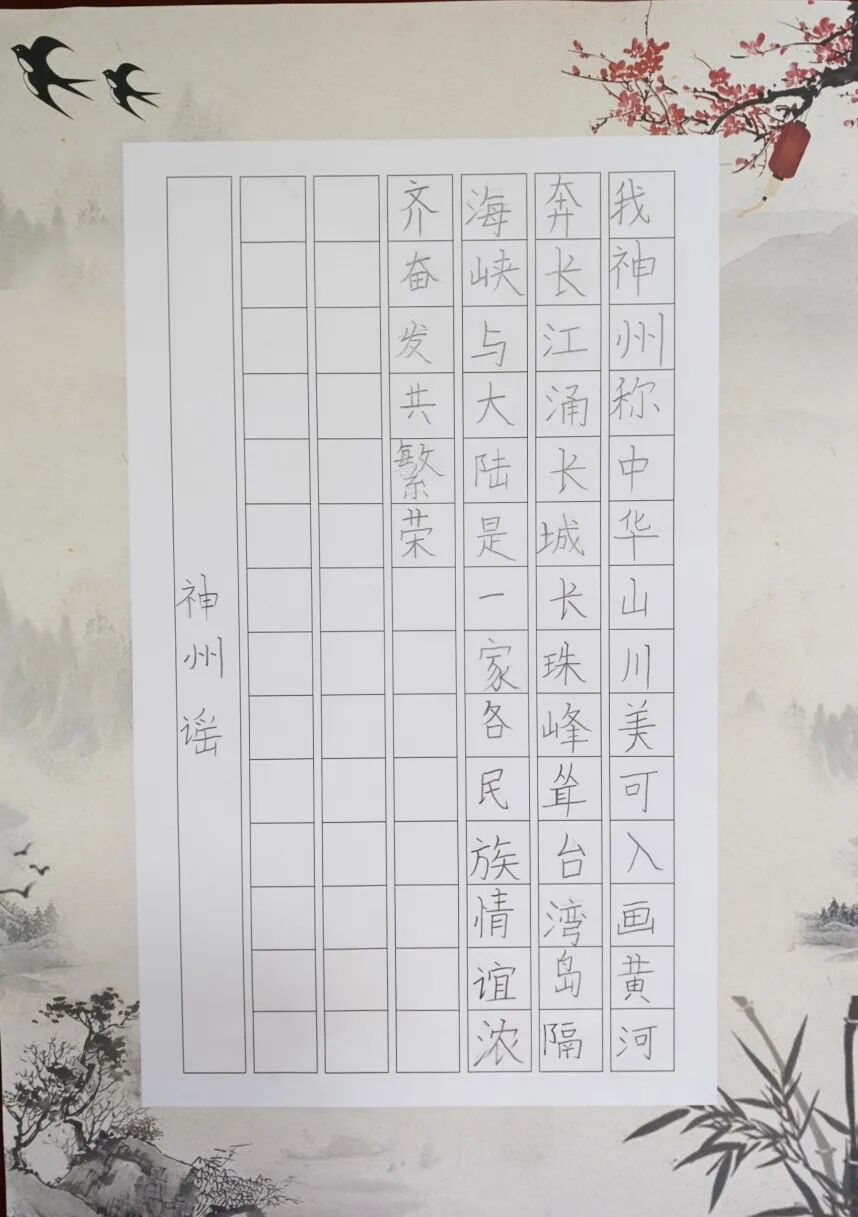 我神州称中华山川美可入画黄河
奔长江涌长城长珠峰耸台湾岛隔
海峡与大陆是一家各民族情谊浓
齐奋发共繁荣
神州谣